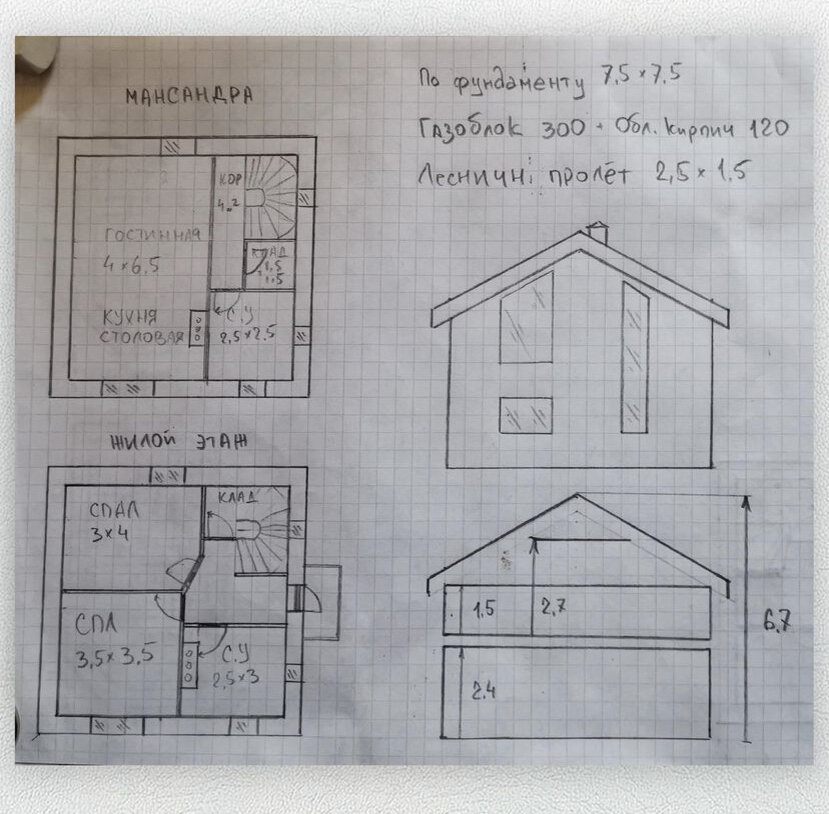 МАНСАНДРА
По фундаменту 7,5×7,5
Газоблок 300 + Обл. Кирпич 120
Лесничні пролёт 2,5×1,5
КОР
4 м²
ГОСТИННАЯ
4×6,5
КУХНЯ
СТОЛОВАЯ
КЛАД
1,5
1,5
С.У
2,5×2,5
ЖИЛОЙ ЭТАЖ
СПАЛ
3×4
КЛАД
СПЛ
3,5×3,5
С.У
2,5×3
1,5
2,7
6,7
2.4